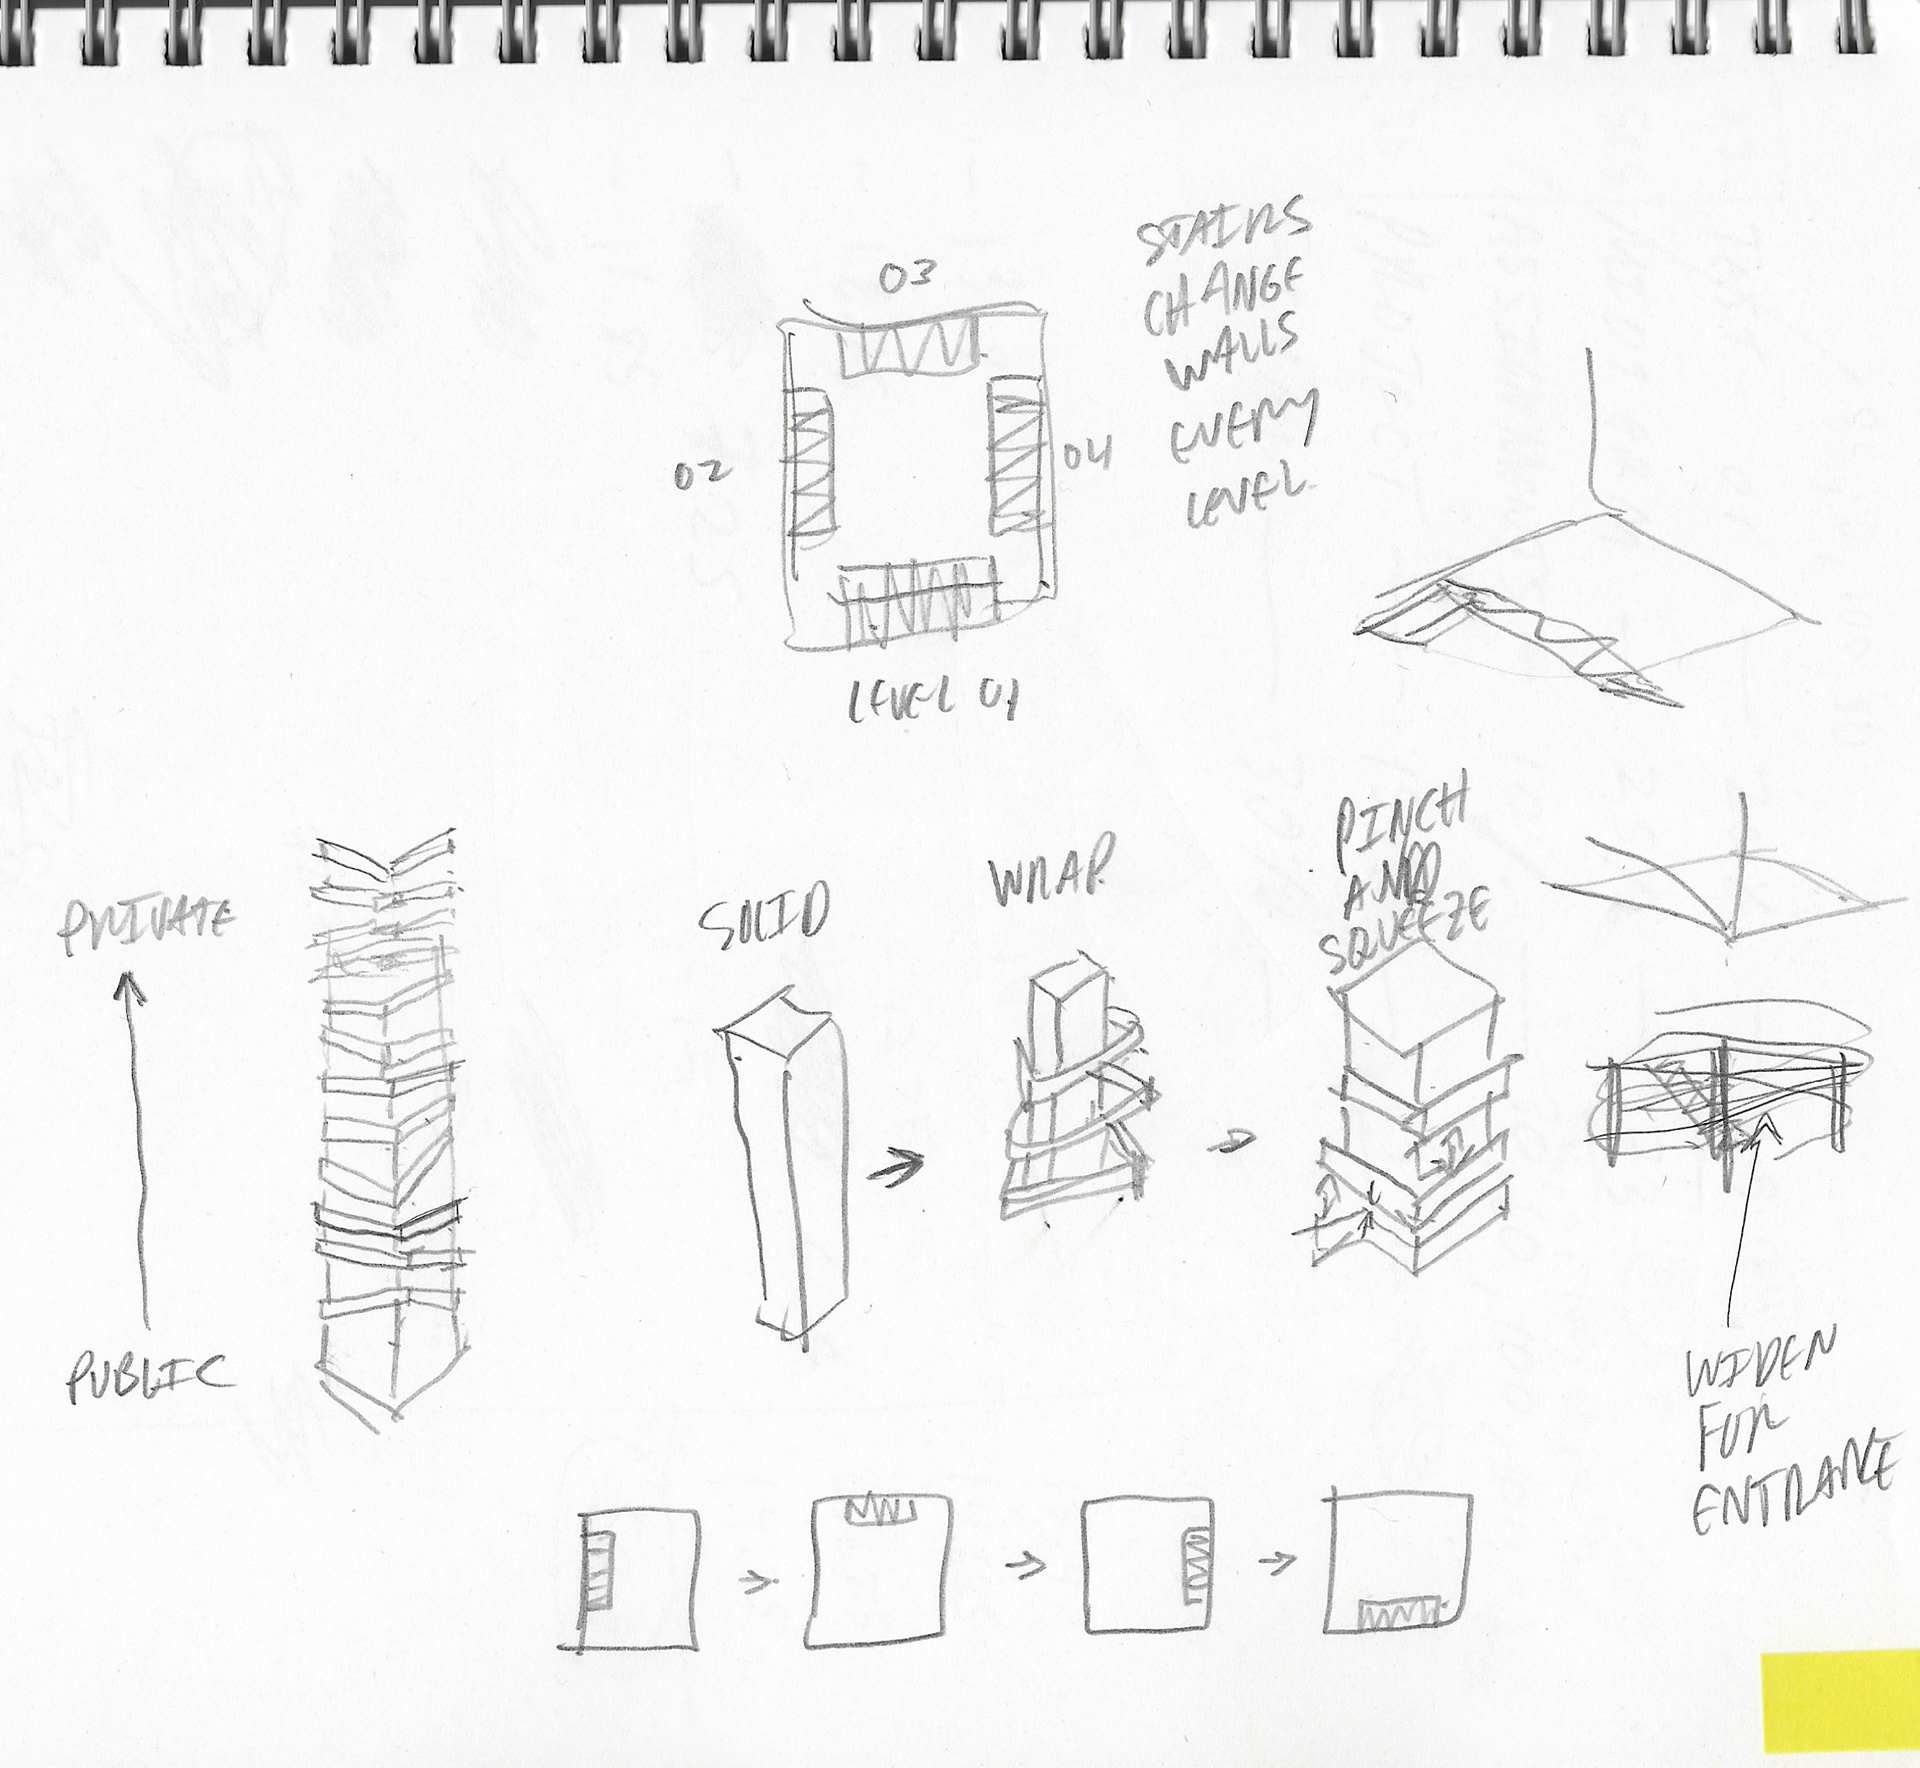 03
STAIRS
CHANGE
WALLS
EVERY
LEVEL
02
04
LEVEL 01
PINCH
AND
SQUEEZE
WRAP
SOLID
PRIVATE
PUBLIC
WIDEN
FOR
ENTRANCE